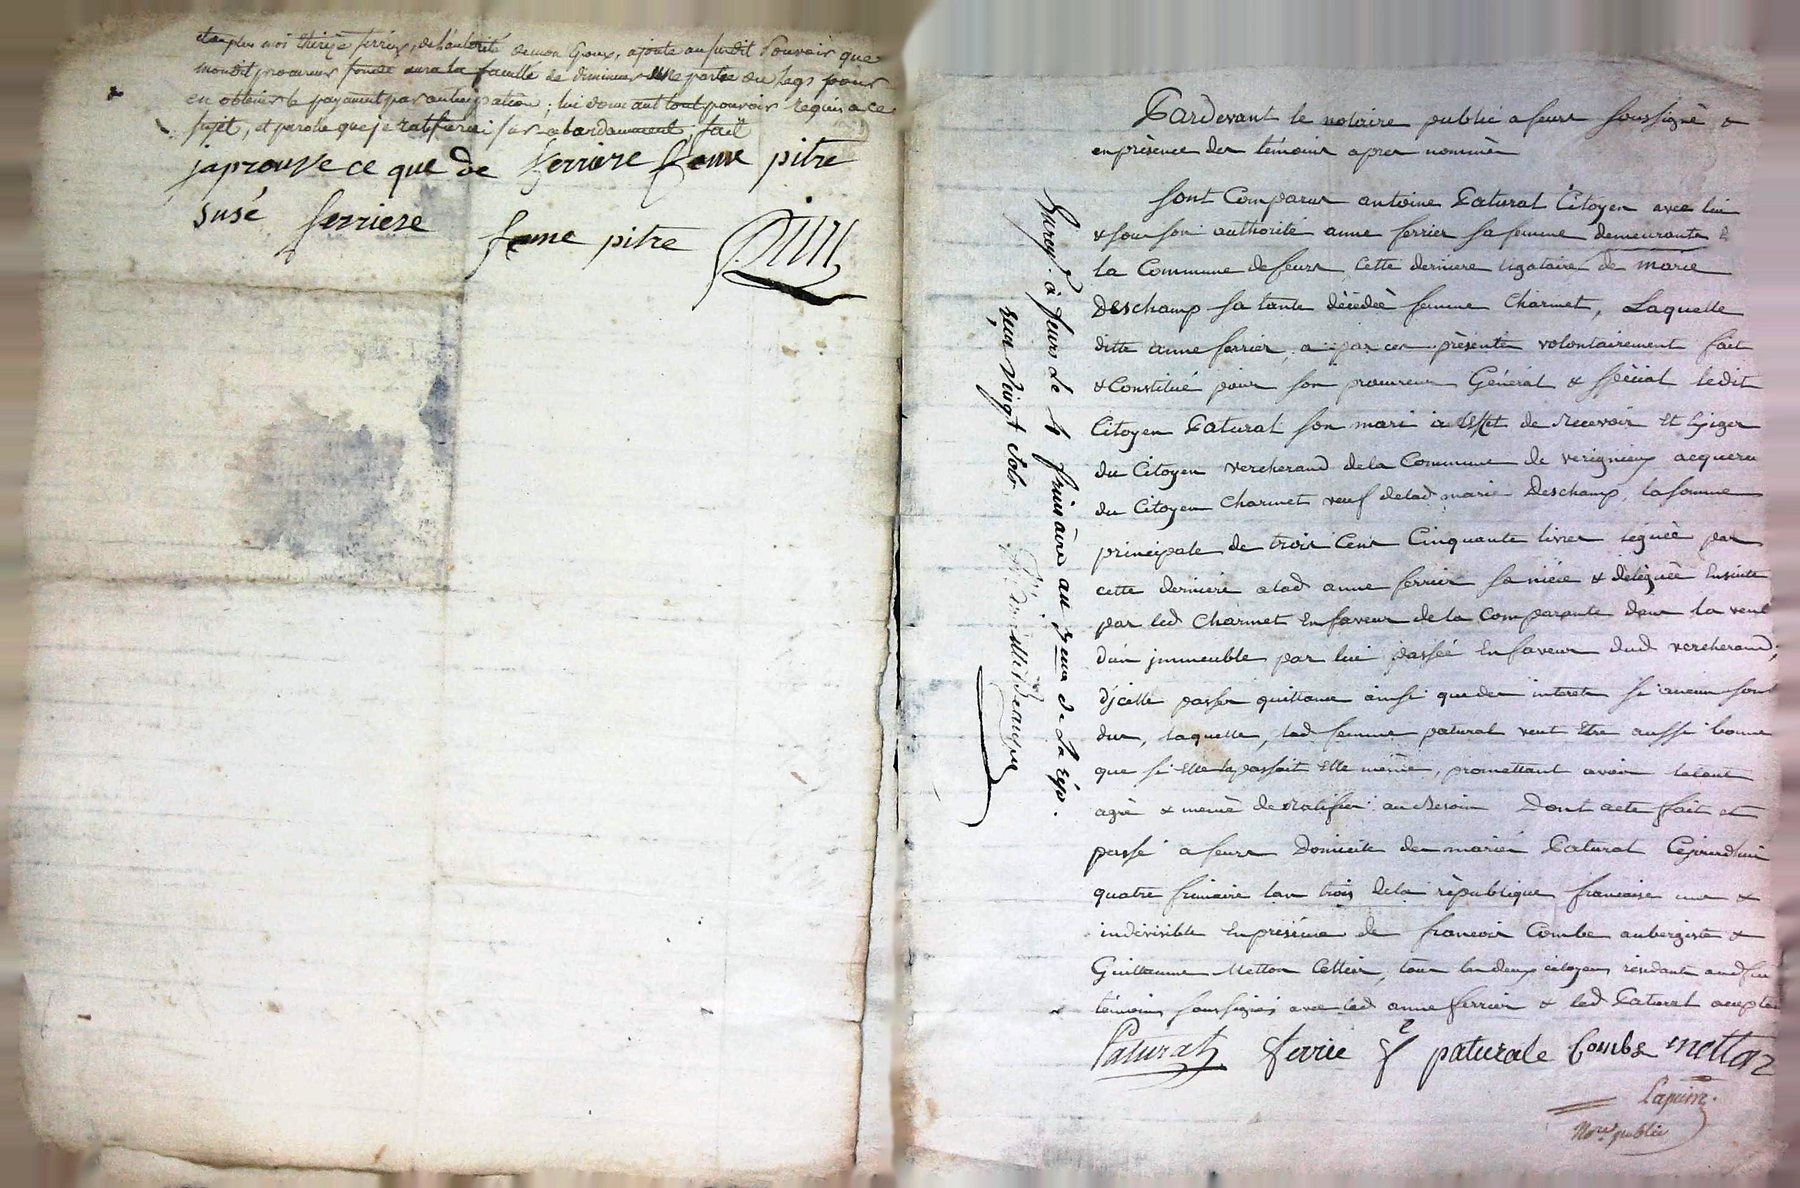 et de plus moi thérèze ferrier, de l'autorité de mon Epoux, ajoute au susdit Pouvoir que
mondit procureur fondé aura la faculté de diminuer une partie du legs pour
en obtenir le payement par anticipation, lui donnant tout pouvoir requis a ce
sujet, et parole que je ratifierai fait
japrouve ce que de ferriere feme pitre
susé ferriere feme pitre Pitre
Pardevant le notoire public a feurs soussigné &
en présence des témoins apres nommés
sont Comparus antoine Patural Citoyen avec lui
& sous son authorité anne ferrier sa femme demeurants à
la Commune de feurs cette derniere légataire de marie
Deschamp sa tante décédée femme Charmet, Laquelle
ditte anne ferrier, a par ces présentes volontairement fait
& Constitué pour son procureur Général & spécial ledit
Citoyen Patural son mari à Effet de recevoir Et Exiger
du Citoyen vercherand de la Commune de verignieux acquereur
du Citoyen Charmet veuf de lad marie Deschamp, la somme
principale de trois Cent Cinquante livres léguée par
cette derniere a lad anne ferrier sa niéce & déléguée Ensuite
par led Charmet En faveur de la Comparante dans la vente
d'un immeuble par lui passée En faveur dud vercherand,
d'jcelle passer quittance ainsi que des interets si aucun sont
dus, laquelle, lad femme patural veut Etre aussi bonne
que si Elle la passait Elle même, promettant avoir le tout
agrée & même de Ratifier au Besoin Dont acte fait et
passé a feurs Domicile des mariés Patural Cejourdhui
quatre frimaire lan trois de la république francaise une &
indivisible En présence de francois Combe aubergiste &
Guillaume Metton Cellier, tous les deux citoyens résidants aud feurs
témoins soussignés avec lad anne ferrier & led Patural aceptant
Patural ferrie fe paturale Combe metton
Lapierre
Nore public
Enregt. à feurs le 4 frimaire an 3eme de la rép.
reçu vingt sols